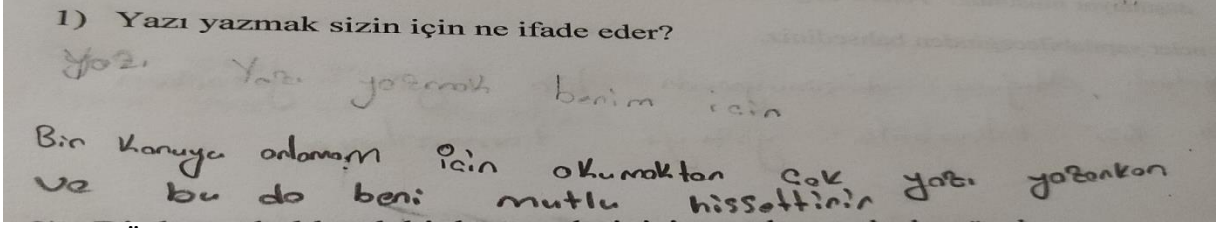 1) Yazı yazmak sizin için ne ifade eder?
Yazı Yazı yazmak benim için
Bir konuyu anlamam için okumaktan çok yazı yazarken
ve bu da beni mutlu hissettirir